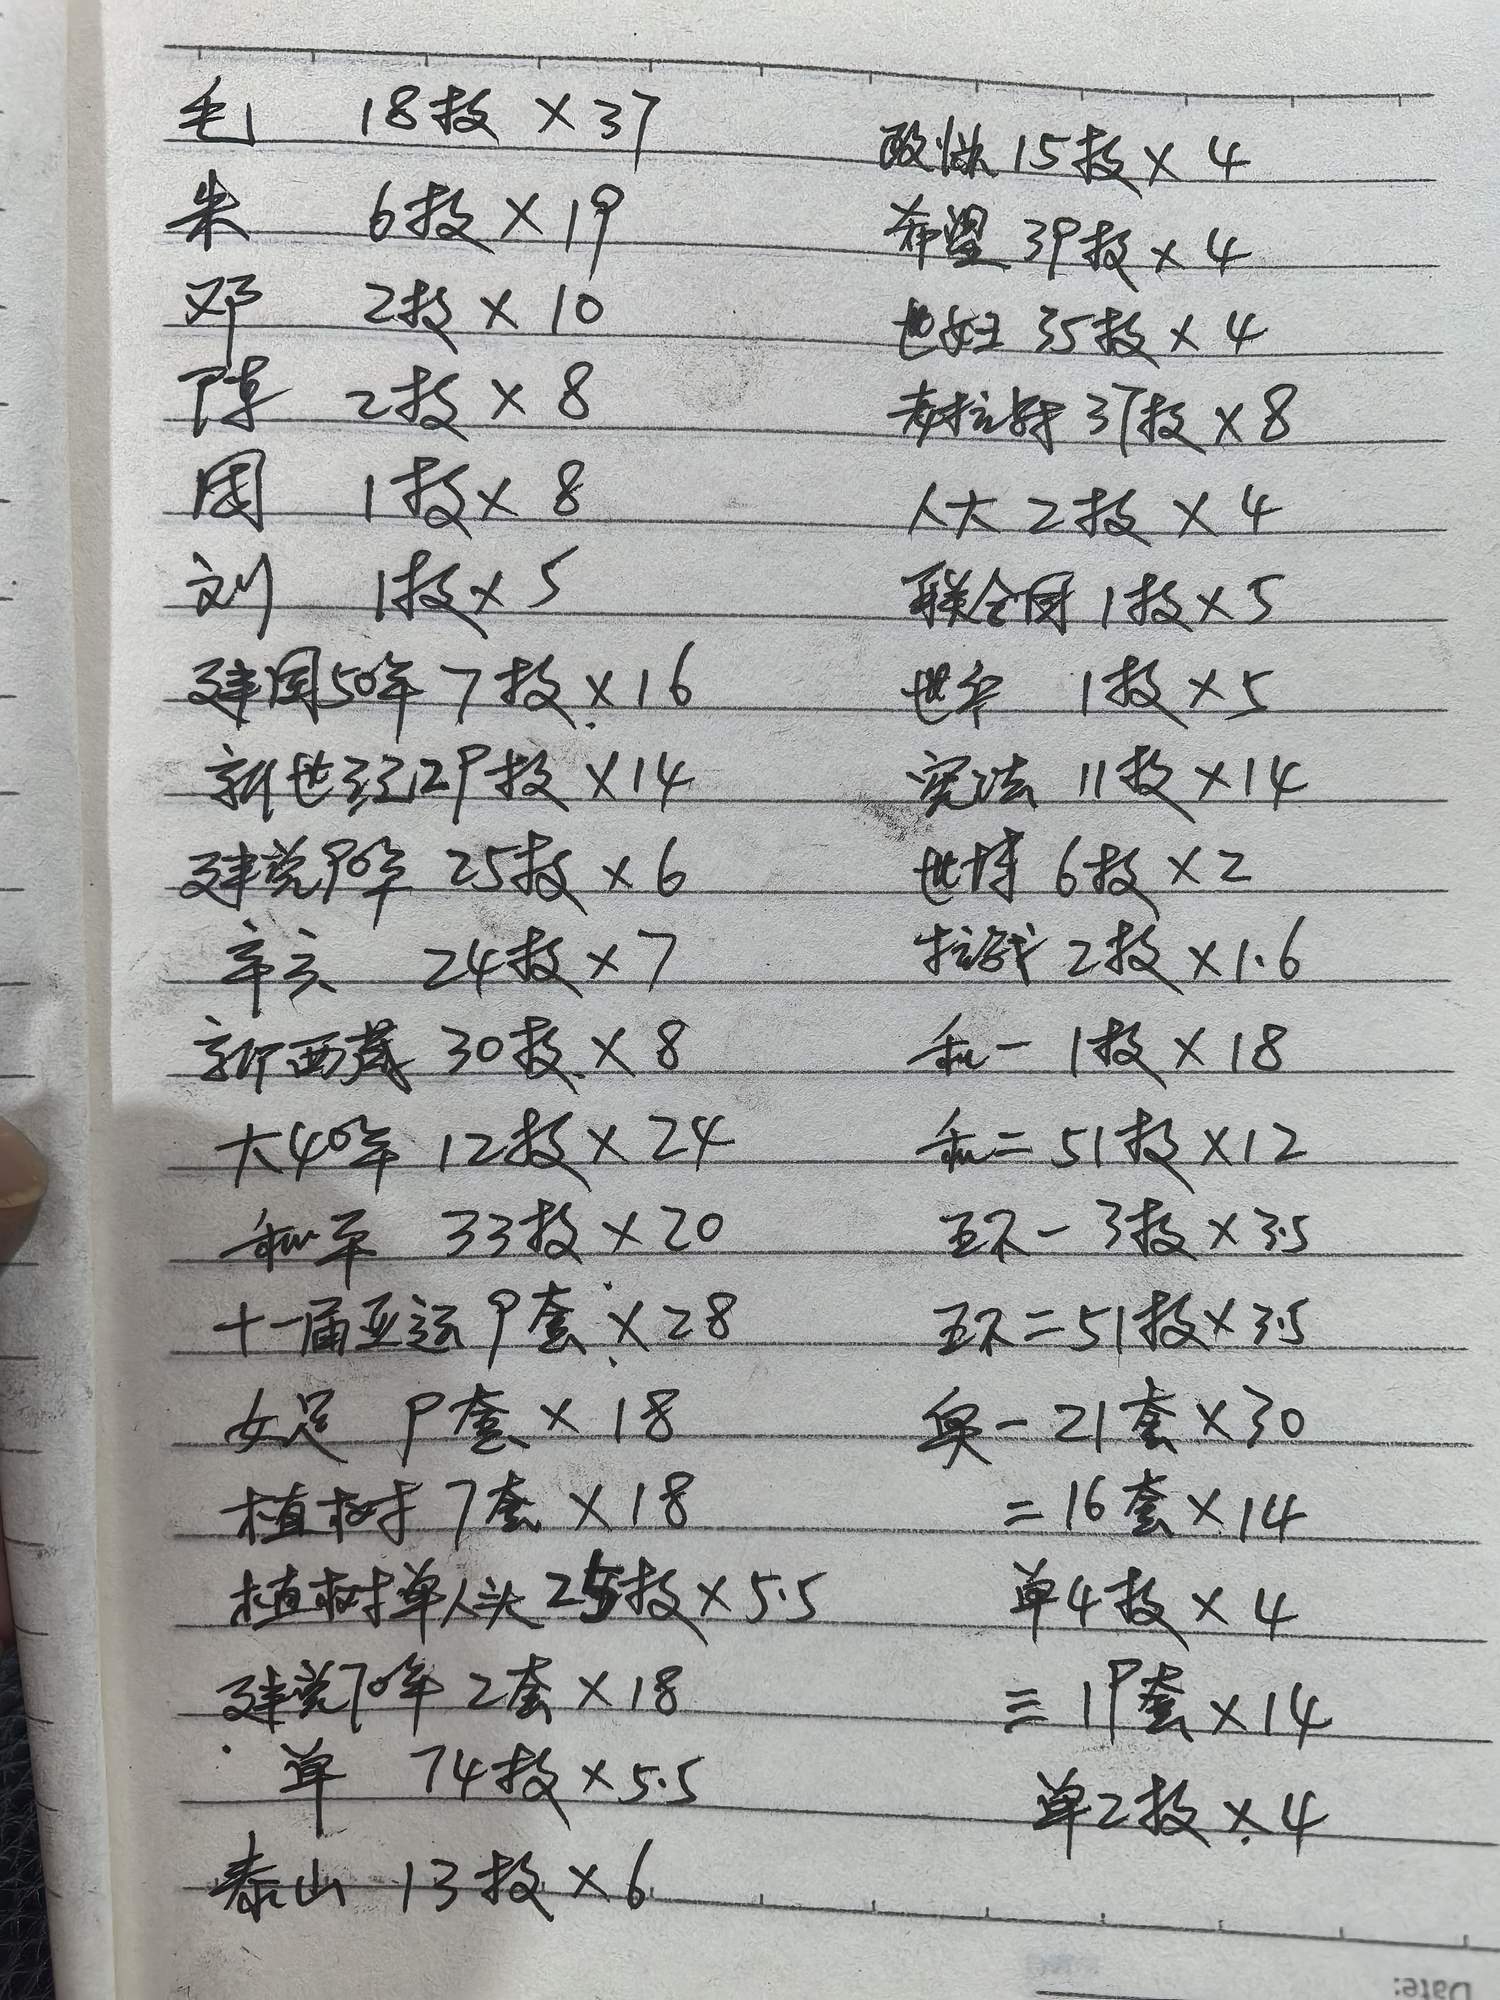 毛 18枚×37
朱 6枚×19
邓 2枚×10
陈 2枚×8
周 1枚×8
刘 1枚×5
建国50年 7枚×16
新世纪 29枚×14
建党90年 25枚×6
辛亥 24枚×7
新西藏 30枚×8
大40年 12枚×24
和平 33枚×20
十一届亚运 9套×28
女足 9套×18
植树 7套×18
植树单人头 25枚×5.5
建党70年 2套×18
单 74枚×5.5
泰山 13枚×6
15枚×4
希望 39枚×4
世妇 35枚×4
老抗战 37枚×8
人大 2枚×4
联合国 1枚×5
世华 1枚×5
宪法 11枚×14
世博 6枚×2
抗战 2枚×1.6
和一 1枚×18
和二 51枚×12
五环一 3枚×3.5
五环二 51枚×3.5
奥一 21套×30
二 16套×14
单4枚×4
三 19套×14
单2枚×4
Date: